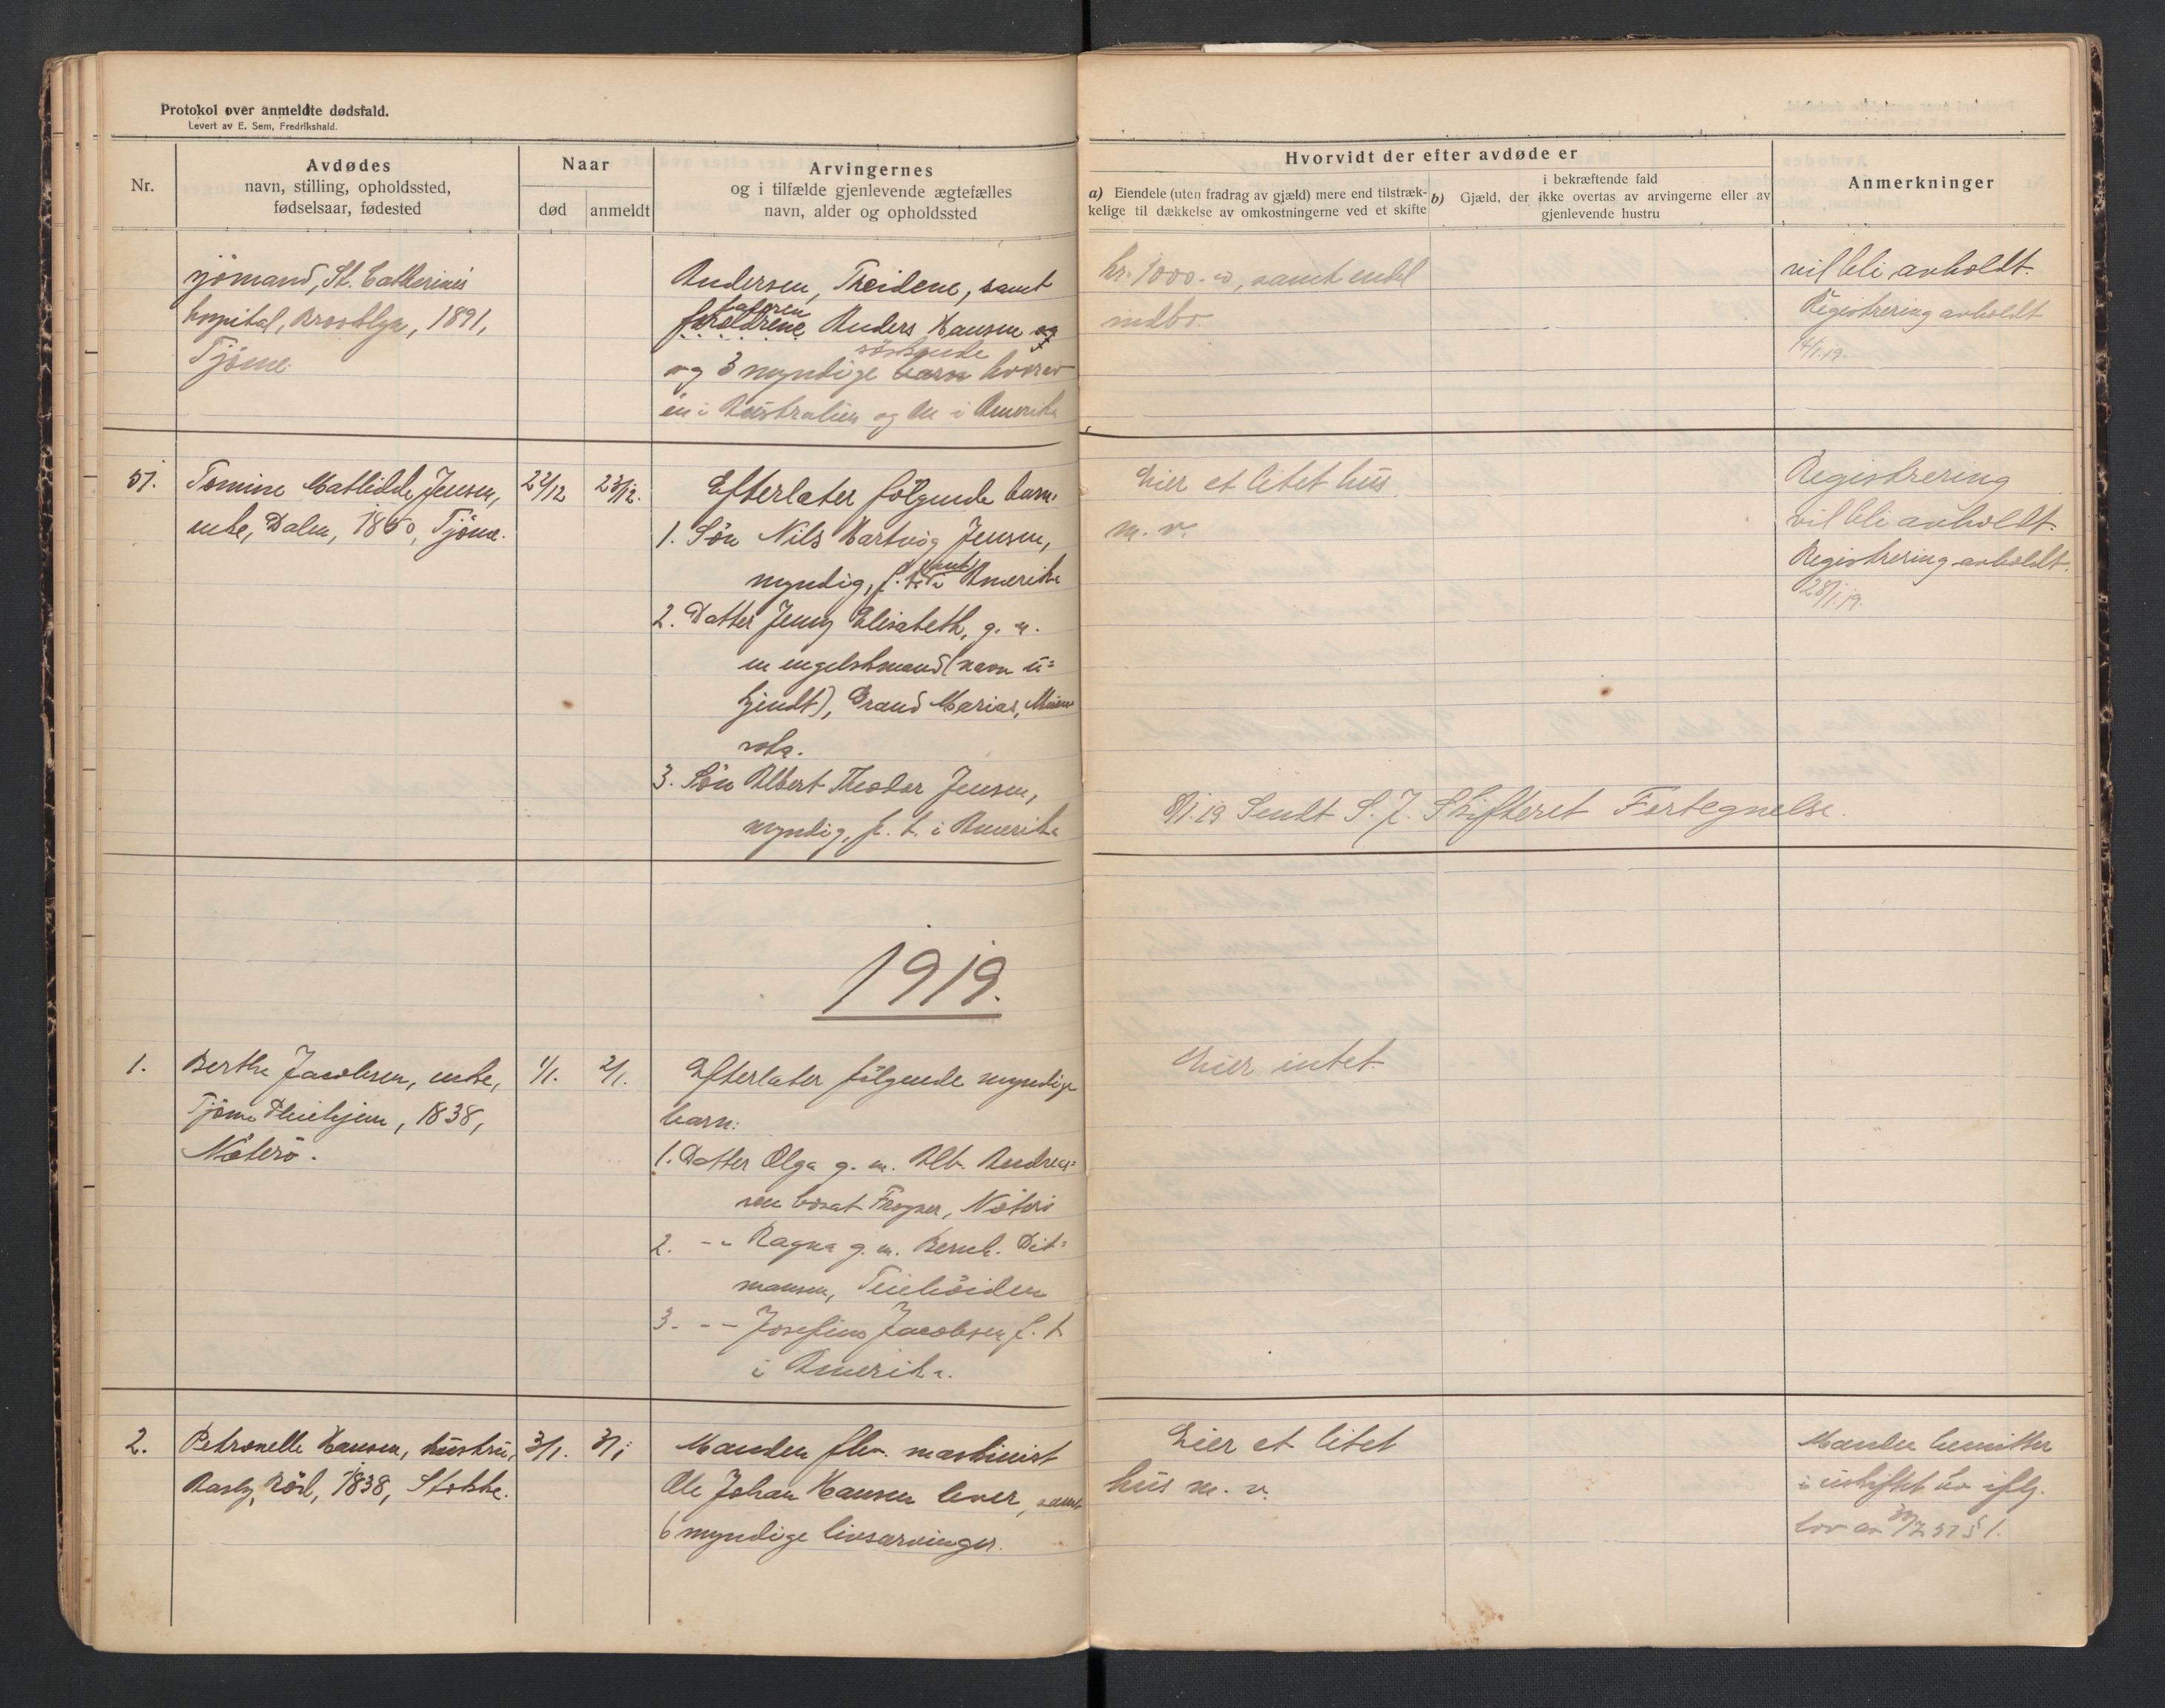 Protokol over anmeldte dødsfald.
Levert av E. Sem, Fredrikshald.
Nr.
Avdødes
navn, stilling, opholdssted,
fødselsaar, fødested
Naar
død
anmeldt
Arvingernes
og i tilfælde gjenlevende ægtefælles
navn, alder og opholdssted
sjömand, St. Catherines
hospital, Brooklyn, 1891,
Tjöme.
Andersen, Treidene, samt
faderen
forældrene Anders Hansen og
söskende
og 3 myndige barn hvorav
én i Australien og én i Amerika
51.
Tomine Mathilde Jensen,
enke, Dalen, 1850, Tjöme.
22/12
23/12.
Efterlater følgende barn:
1. Sön Nils Hartvig Jensen,
myndig, f. t. i Amerika
2. Datter Jenny Elisabeth, g. m.
en engelskmand (navn u=
kjendt), Grand Marias, Minne
sota.
3. Sön Albert Theodor Jensen,
myndig, f. t. i Amerika
1919.
1.
Berthe Jacobsen, enke,
Tjöme Pleiehjem, 1838,
Nöterö.
1/1.
2/1.
Efterlater følgende myndige
barn:
1. Datter Olga g. m. Alb. Andreas=
sen bosat Trogser, Nöterö
2. -"- Ragna g. m. Bernh. Dit=
mansen, Teiehöiden
3. -"- Josefine Jacobsen f. t
i Amerika.
2.
Petronelle Hansen, hustru,
Röd, 1838, Stokke.
3/1.
3/1
Manden fhv. maskinist
Ole Johan Hansen lever, samt
6 myndige livsarvinger.
Hvorvidt der efter avdøde er
a) Eiendele (uten fradrag av gjæld) mere end tilstræk-
kelige til dækkelse av omkostningerne ved et skifte
i bekræftende fald
b) Gjæld, der ikke overtas av arvingerne eller av
gjenlevende hustru
Anmerkninger
kr. 1000.-, samt endel
indbo.
vil bli avholdt.
Registrering avholdt
14/1.19.
Eier et litet hus
m. v.
Registrering
vil bli avholdt.
Registrering avholdt.
28/1.19.
8/1.19 Sendt S. J. Skifteret Fortegnelse.
Eier intet.
Eier et litet
hus m. v.
Manden hensitter
i uskiftet bo iflg.
lov av 30/7 51 § 1.